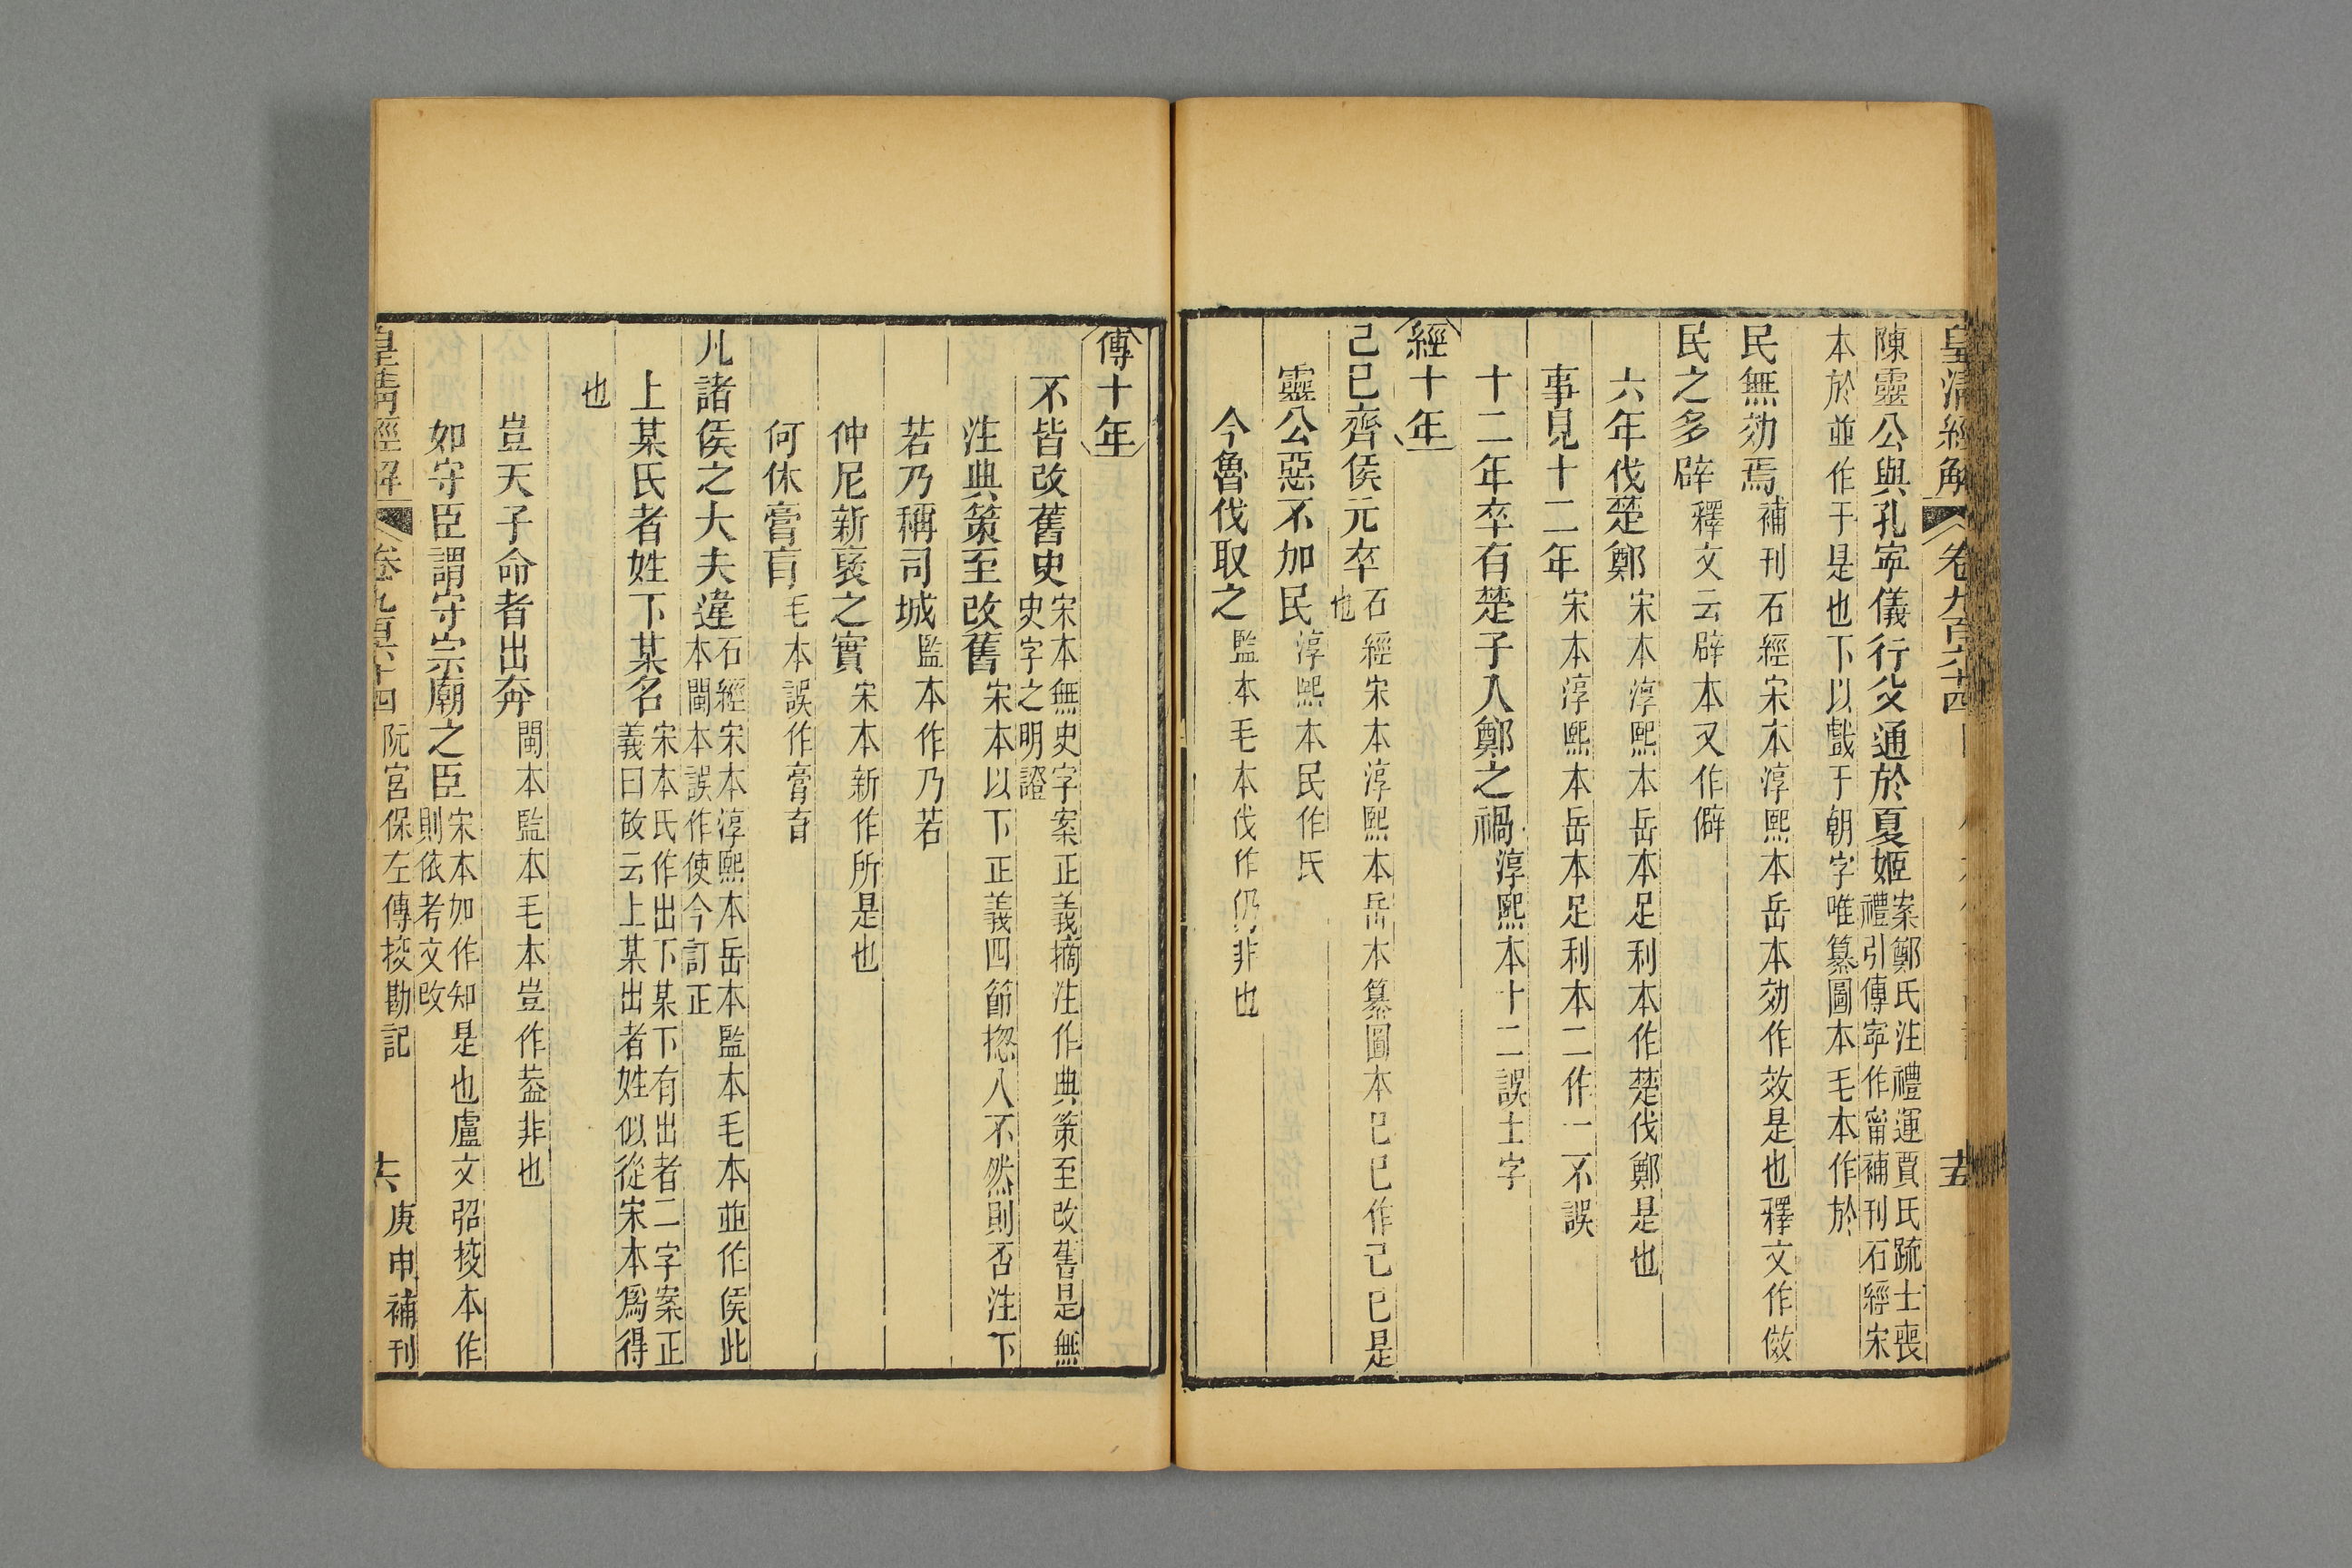 皇清經解 卷九百六十四 十五
陳靈公與孔寧儀行父通於夏姬案鄭氏注禮運賈氏疏士喪禮引傳寧作甯補刊石經宋
本於並作于是也下以戲于朝字唯纂圖本毛本作於
民無効焉補刊石經宋本淳熙本岳本効作效是也釋文作傚
民之多辟釋文云辟本又作僻
六年伐楚鄭宋本淳熙本岳本足利本作楚伐鄭是也
事見十二年宋本淳熙本岳本足利本二作一不誤
十二年卒有楚子入鄭之禍淳熙本十二誤士字
經十年
己巳齊侯元卒石經宋本淳熙本岳本纂圖本巳巳作己巳是也
靈公惡不加民淳熙本民作氏
今魯伐取之監本毛本伐作仍非也
傳十年
不皆改舊史宋本無史字案正義摘注作典策至改舊是無史字之明證
注典策至改舊宋本以下正義四節揔入不然則否注下
若乃稱司城監本作乃若
仲尼新褒之實宋本新作所是也
何休膏肓毛本誤作膏盲
凡諸侯之大夫違石經宋本淳熙本岳本監本毛本並作侯此本閩本誤作使今訂正
上某氏者姓下某名宋本氏作出下某下有出者二字案正義曰故云上某出者姓似從宋本爲得
也
豈天子命者出奔閩本監本毛本豈作葢非也
如守臣謂守宗廟之臣宋本加作知是也盧文弨挍本作則依考文改
皇清經解 卷九百六十四 阮宮保左傳挍勘記 十六 庚申補刊